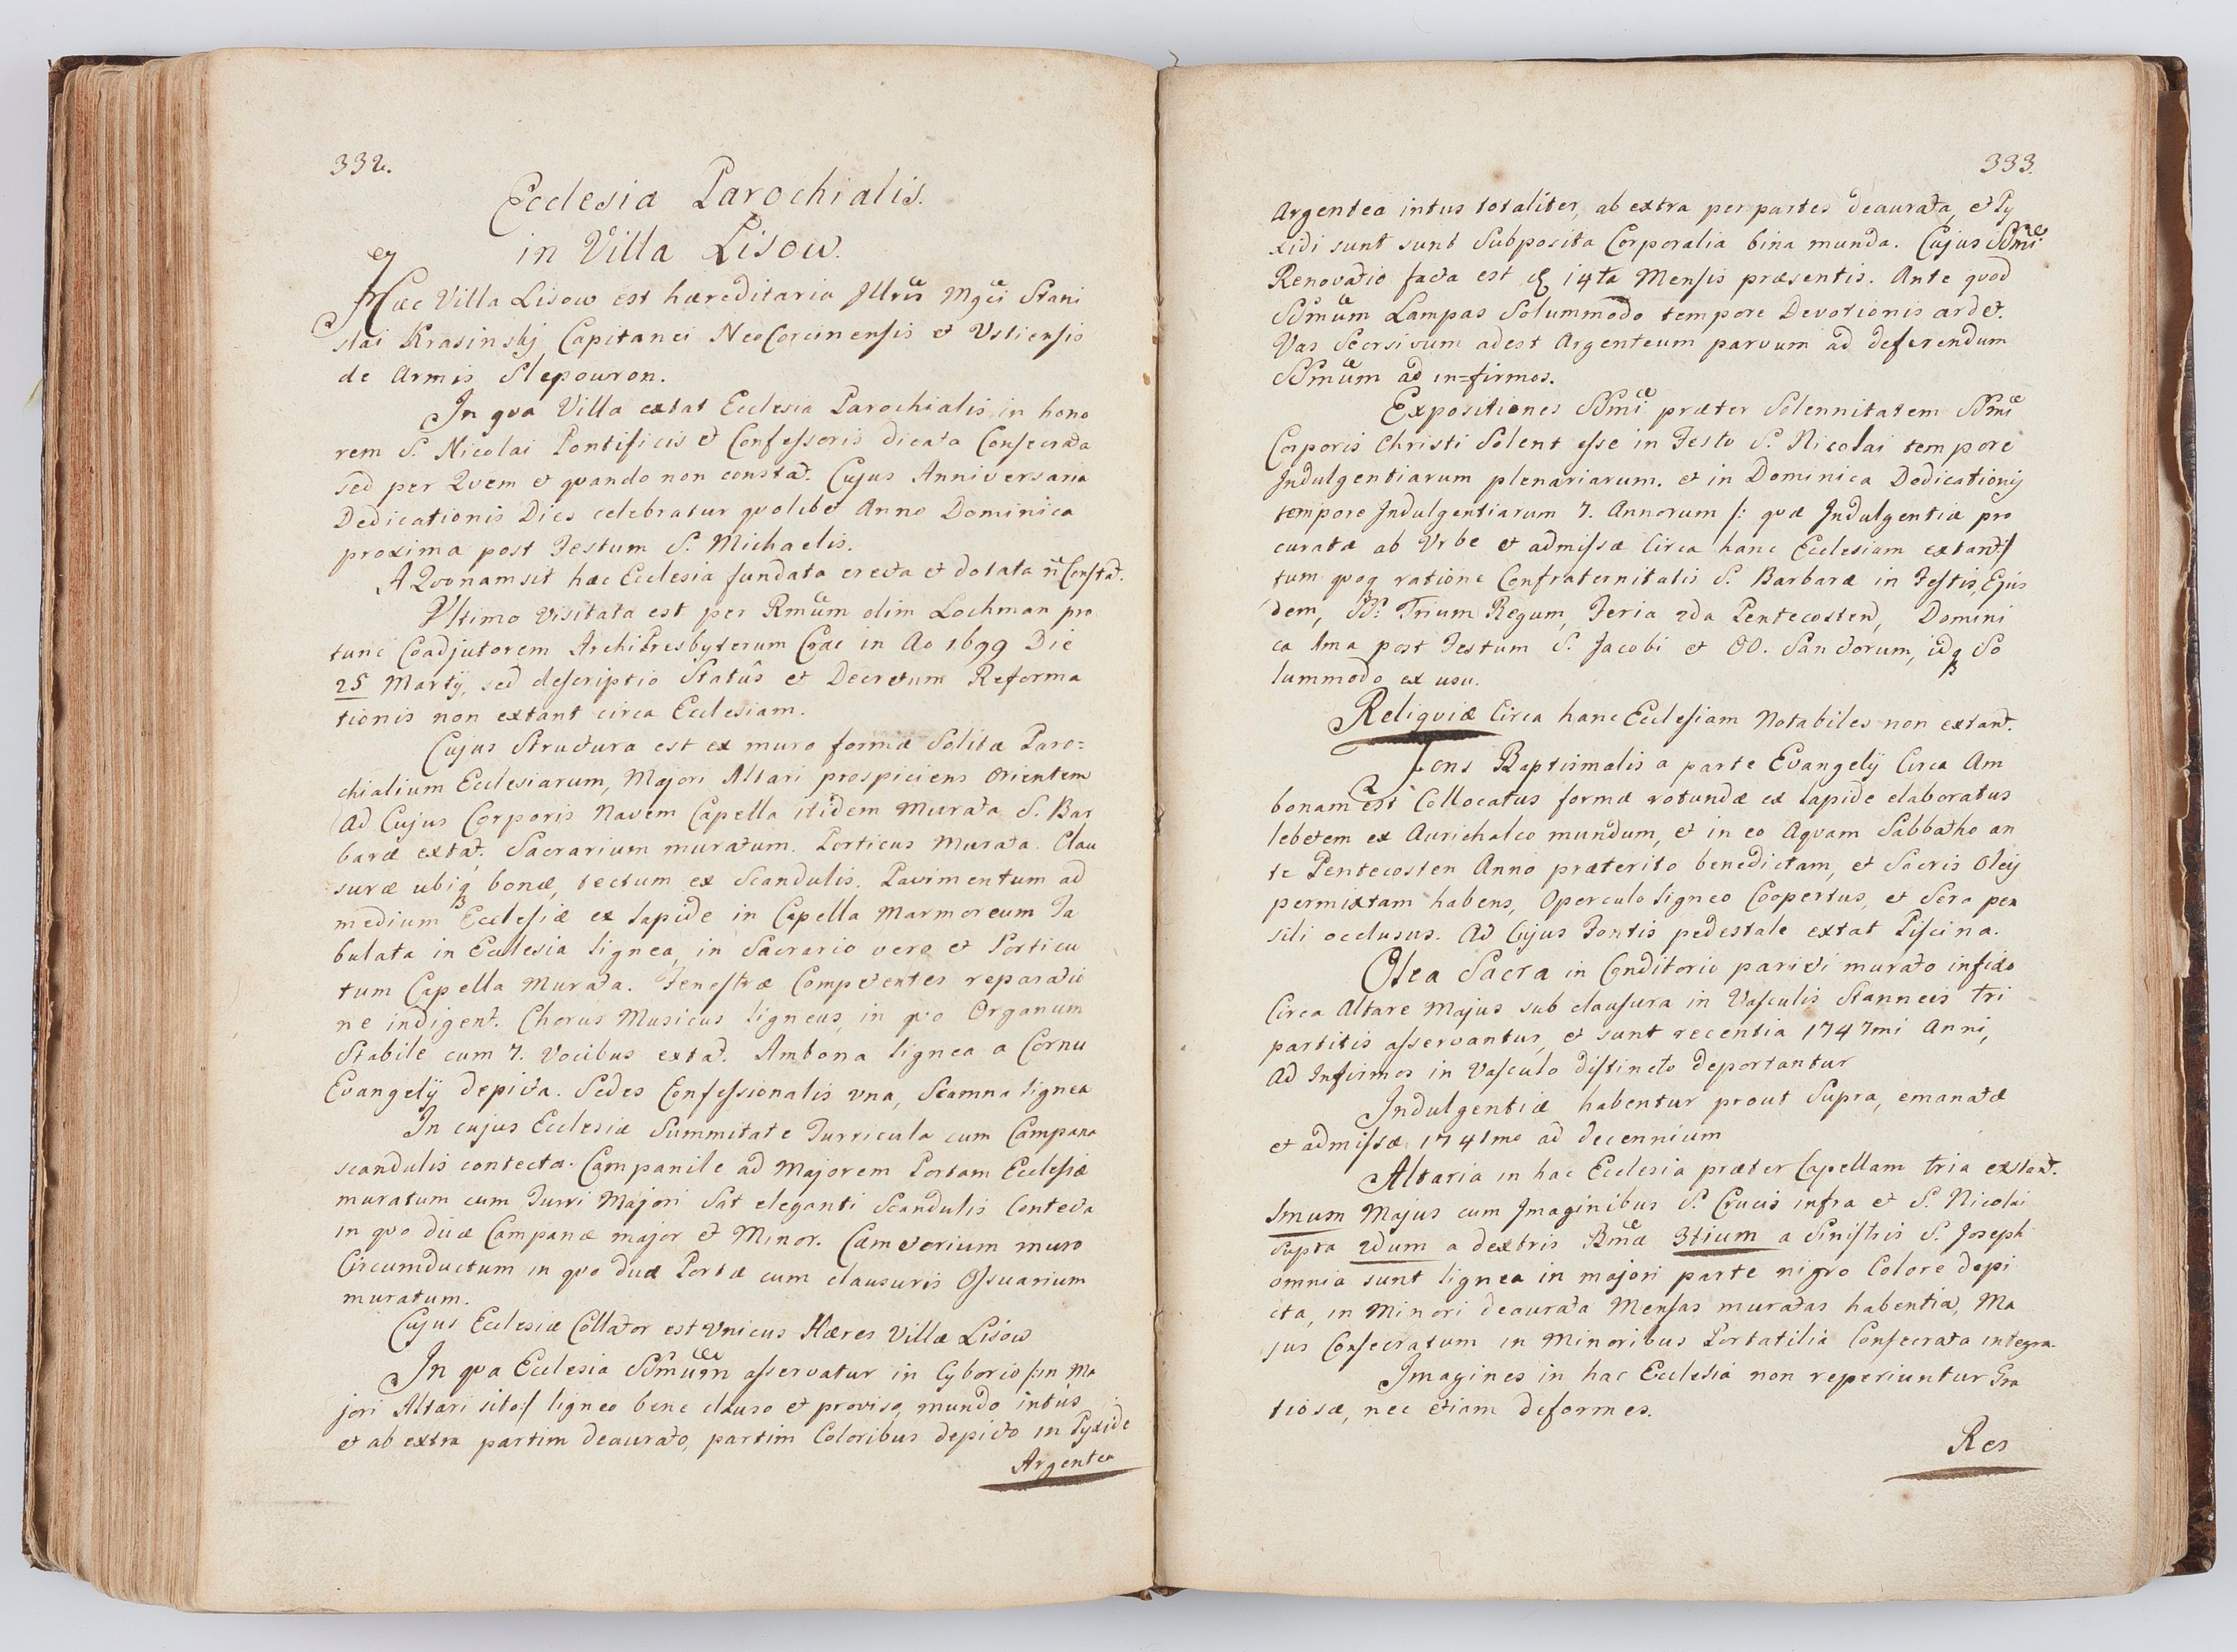 332.
Ecclesia Parochialis.
in Villa Lisow.
Hæc Villa Lisow est hæreditaria Illris Mgci Stani
slai Krasinskj Capitanei NeoCorcinensis et Ustiensis
de Armis Slepowron.
In qva Villa extat Ecclesia Parochialis in hono
rem S. Nicolai Pontificis et Confessoris dicata Consecrata
sed per Qvem et qvando non constat. Cujus Anniversaria
Dedicationis Dies celebratur qvolibet Anno Dominica
proxima post Festum S. Michaelis.
A Qvonam sit hæc Ecclesia fundata erecta et dotata n̄ Constat.
Ultimo visitata est per Rmum olim Lochman pro
tunc Coadjutorem ArchiPresbyterum Crac in Ao 1699 Die
25 Martij, sed descriptio Statûs et Decretum Reforma
tionis non extant circa Ecclesiam.
Cujus Structura est ex muro formæ Solitæ Paro=
chialium Ecclesiarum, Majori Altari prospiciens Orientem
Ad Cujus Corporis Navem Capella itidem Murata S. Bar
baræ extat. Sacrarium muratum. Porticus Murata. Clau
suræ ubiq bonæ, tectum ex Scandulis. Pavimentum ad
medium Ecclesiæ ex lapide in Capella Marmoreum Ta
bulata in Ecclesia lignea, in Sacrario vero et Porticu
tum Capella Murata. Fenestræ Competentes reparatio
ne indigent. Chorus Musicus ligneus, in qvo Organum
Stabile cum 7. Vocibus extat. Ambona lignea a Cornu
Evangelij depicta. Sedes Confessionalis vna, Scamna lignea
In cujus Ecclesiæ Summitate Turricula cum Campana
scandulis contecta. Campanile ad Majorem Portam Ecclesiæ
muratum cum Turri Majori Sat eleganti Scandulis Contecta
in qvo duæ Campanæ major et Minor. Cæmeterium muro
Circumductum in qvo duæ Portæ cum clausuris Ossuarium
muratum.
Cujus Ecclesiæ Collator est Vnicus Hæres Villæ Lisow
In qva Ecclesia SSmum asservatur in Cyborio /:in Ma
jori Altari sito:/ ligneo bene clauso et proviso, mundo intùs
et ab extra partim deaurato, partim Coloribus depicto in Pyxide
Argentea
333.
Argentea intus totaliter, ab extra per partes deaurata, et Py
xidi sunt sunt Subposita Corporalia bina munda. Cujus SSmi
Renovatio facta est 14ta Mensis præsentis. Ante qvod
SSmum Lampas Solummodo tempore Devotionis ardet.
Vas Seorsivum adest Argenteum parvum ad deferendum
SSmum ad in=firmos.
Expositiones SSmi præter Solennitatem SSmi
Corporis Christi Solent esse in Festo S. Nicolai tempore
Indulgentiarum plenariarum. et in Dominica Dedicationis
tempore Indulgentiarum 7. Annorum /: qvæ Indulgentiæ pro
curatæ ab Vrbe et admissæ Circa hanc Ecclesiam extant:/
tum qvoq ratione Confraternitatis S. Barbaræ in Festis, Ejus
dem, SS. Trium Regum, Feria 2da Pentecosten, Domini
ca 1ma post Festum S. Jacobi et OO. Sanctorum, idq So
lummodo ex usu.
Reliqviæ Circa hanc Ecclesiam Notabiles non extant.
Fons Baptismalis a parte Evangelij Circa Am
bonam est Collocatus formæ rotundæ ex lapide elaboratus
lebetem ex Aurichalco mundum, et in eo Aqvam Sabbatho an
te Pentecosten Anno præterito benedictam, et Sacris Oleij
permixtam habens, Operculo ligneo Coopertus, et Sera pen
sili occlusus. Ad Cujus Fontis pedestale extat Piscina.
Olea Sacra in Conditorio parieti murato infixo
Circa Altare Majus sub clausura in Vasculis Stanneis tri
partitis asservantur, et sunt recentia 1747mi Anni,
Ad Infirmos in Vasculo distincto deportantur
Indulgentiæ habentur prout Supra, emanatæ
et admissæ 1741mo ad decennium
Altaria in hac Ecclesia præter Capellam tria extant.
1mum Majus cum Imaginibus S. Crucis infra et S. Nicolai
supra 2dum a dextris Bmæ 3tium a Sinistris S. Joseph
omnia sunt lignea in majori parte nigro Colore depi
cta, in Minori deaurata Mensas muratas habentia, Ma
jus Consecratum in Minoribus Portatilia Consecrata integra
Imagines in hac Ecclesia non reperiuntur Gra
tiosæ, nec etiam deformes.
Res